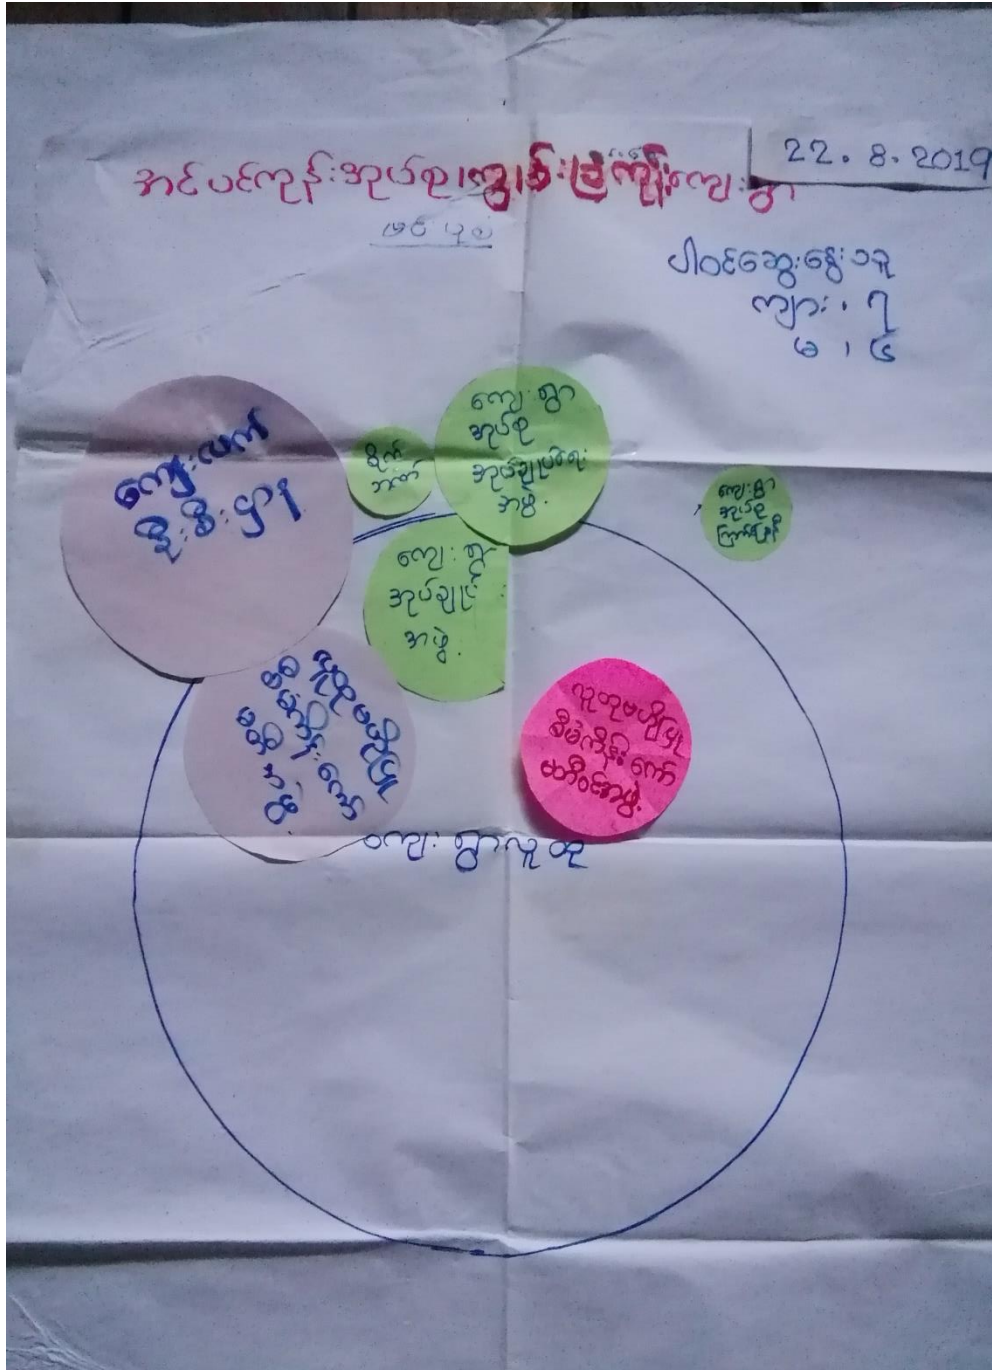 22.8.2019
အင်ပင်ကုန်းအုပ်စု၊ကျွန်းခြံကြီးကျေးရွာ
ဗင်ပုံစံ
ပါဝင်ဆွေးနွေးသူ
ကျား ၊ ၇
မ ၊ ၄
ကျေးလက်
ဦးစီးဌာန
စိုက်
ကျေးရွာ
အုပ်စု
အုပ်ချုပ်ရေး
အဖွဲ့
ကျေးရွာ
အုပ်စု
ကျေးရွာ
အုပ်ချုပ်
အဖွဲ့
လူထုဗဟိုပြု
စီမံကိန်း ကော်
မတီအဖွဲ့
လူထုဗဟိုပြု
စီမံကိန်း ကော်
မတီဝင်အဖွဲ့
ကျေးရွာလူထု